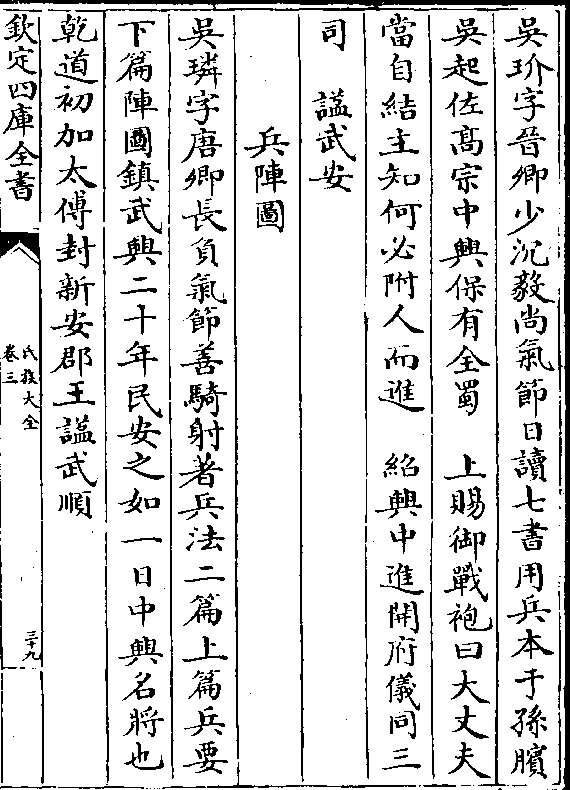 吳玠字晉卿少沉毅尚氣節日讀七書用兵本于孫臏
吳起佐髙宗中興保有全蜀　上賜御戰袍曰大丈夫
當自結主知何必附人而進　紹興中進開府儀同三
司　謚武安
兵陣圖
吳璘字唐卿長負氣節善騎射著兵法二篇上篇兵要
下篇陣圖鎮武興二十年民安之如一日中興名將也
乾道初加太傅封新安郡王謚武順
欽定四庫全書
氏族大全
卷三
三十九